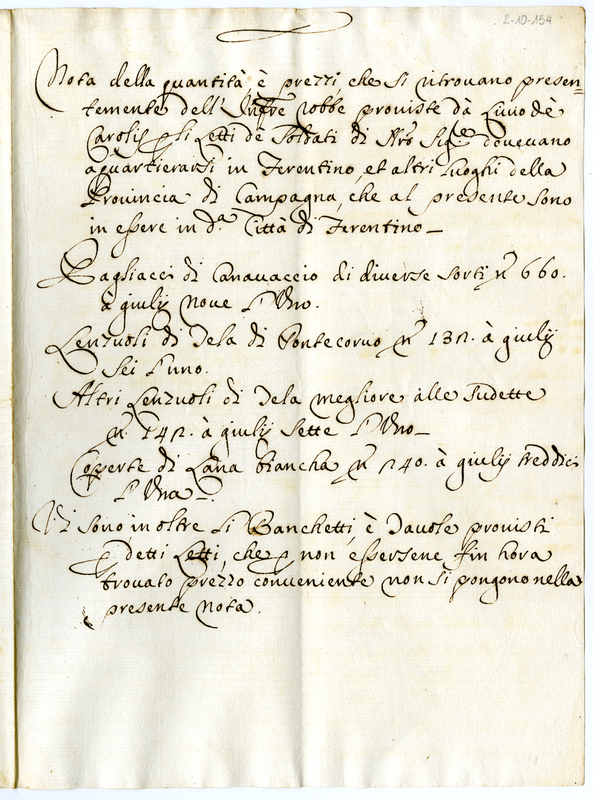 2-10-154
Nota della quantità, è prezzi, che si ritrouano presen=
temente dell' Infre robbe prouiste dà Liuio dè
Carolis p li Letti dè Soldati di Nro Sigre doueuano
aquartierarsi in Ferentino, et altri Luoghi della
Prouincia di Campagna, che al presente sono
in essere in da Città di Ferentino_
Pagliacci di Canauaccio di diuerse sorti n° 660.
à giulij noue l'Uno.
Lenzuoli di Tela di Pontecoruo n° 132. à giulij
sei l'uno.
Altri Lenzuoli di Tela megliore alle
n° 142. à giulij sette l'Uno_
Coperte di Lana biancha n° 240. à giulij treddici
l'Una.
Vi sono in oltre li Banchetti, è Tauole prouisti
p detti Letti, che p non essersene fin hora
trouato prezzo conueniente non si pongono nella
presente nota.